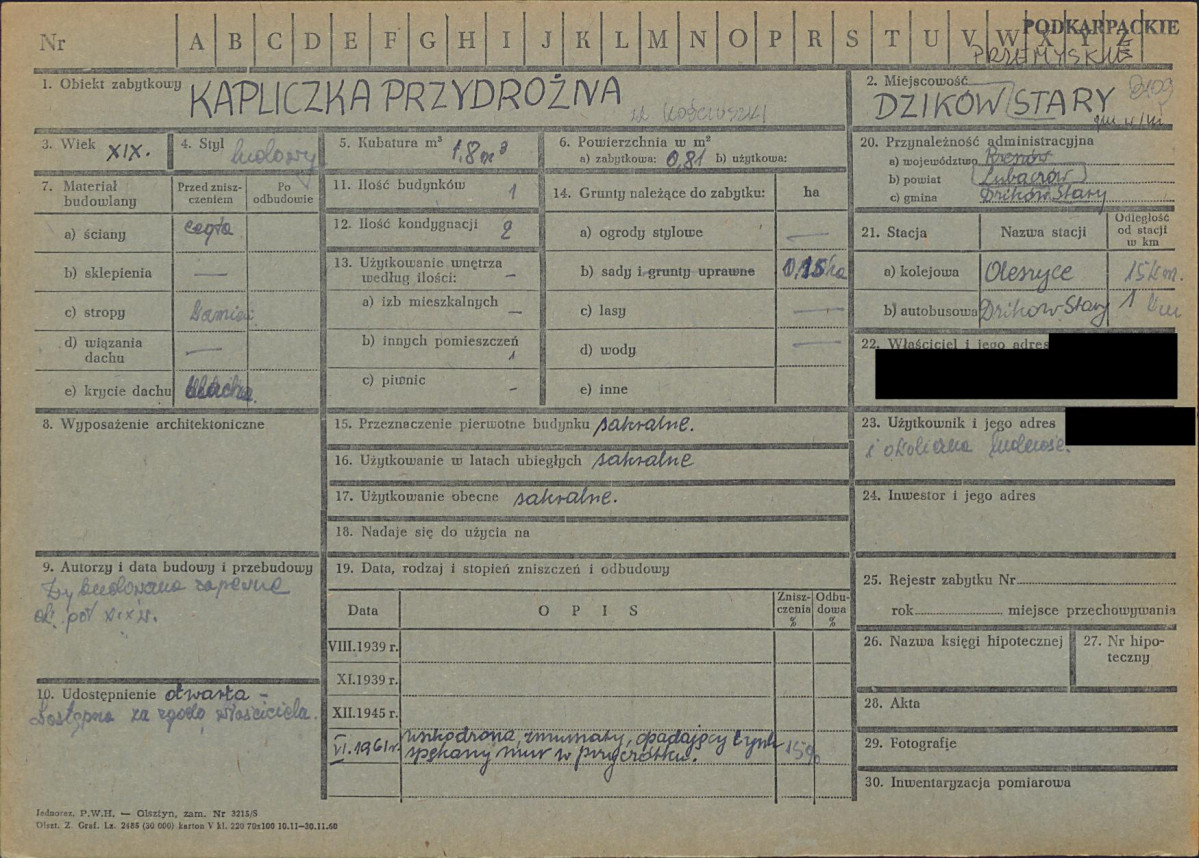 Nr A B C D E F G H I J K L M N O P R S T U V W X Y Z
PODKARPACKIE
PRZEMYSKIE
1. Obiekt zabytkowy KAPLICZKA PRZYDROŻNA
ul. Kościuszki
2. Miejscowość
DZIKÓW STARY
3. Wiek XIX.
4. Styl ludowy
5. Kubatura m³ 1,8 m³
6. Powierzchnia w m²
a) zabytkowa: 0,81 b) użytkowa:
20. Przynależność administracyjna
a) województwo Rzeszów
b) powiat Lubaczów
c) gmina Dzików Stary
7. Materiał budowlany
Przed zniszczeniem
Po odbudowie
a) ściany cegła
b) sklepienia —
c) stropy
d) wiązania dachu —
e) krycie dachu blacha
11. Ilość budynków 1
12. Ilość kondygnacji 2
13. Użytkowanie wnętrza według ilości: –
a) izb mieszkalnych –
b) innych pomieszczeń 1
c) piwnic –
14. Grunty należące do zabytku: ha
a) ogrody stylowe —
b) sady i grunty uprawne 0,15 ha
c) lasy —
d) wody —
e) inne
21. Stacja
Nazwa stacji
Odległość od stacji w km
a) kolejowa Oleszyce 15 km.
b) autobusowa Dzików Stary 1 km
22. Właściciel i jego adres
8. Wyposażenie architektoniczne
15. Przeznaczenie pierwotne budynku sakralne.
16. Użytkowanie w latach ubiegłych sakralne
17. Użytkowanie obecne sakralne.
18. Nadaje się do użycia na
23. Użytkownik i jego adres
i okoliczna ludność.
24. Inwestor i jego adres
9. Autorzy i data budowy i przebudowy
Wybudowana zapewne
ok. poł XIX w.
19. Data, rodzaj i stopień zniszczeń i odbudowy
Data
OPIS
Zniszczenia %
Odbudowa %
VIII.1939 r.
XI.1939 r.
XII.1945 r.
VI.1961 r. uszkodzona, opadający tynk
spękany mur w przyczółku. 15%
25. Rejestr zabytku Nr
rok miejsce przechowywania
26. Nazwa księgi hipotecznej
27. Nr hipoteczny
28. Akta
29. Fotografie
30. Inwentaryzacja pomiarowa
10. Udostępnienie otwarta –
dostępna za zgodą właściciela.
Jednotez. P.W.H. — Olsztyn, zam. Nr 3215/S
Olszt. Z. Graf. Lz. 2486 (30 000) karton V kl. 220 70x100 10.11—30.11.60